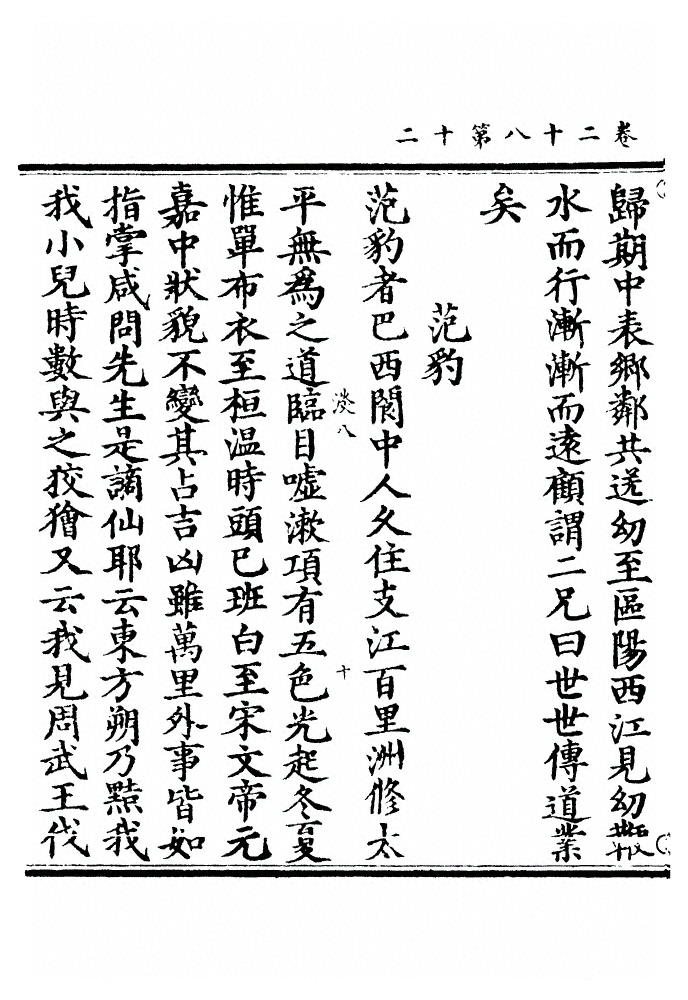 卷二十八第十二
歸期中表鄉鄰共送幼至區陽西江見幼鞭
水而行漸漸而遠顧謂二兄曰世世傳道業
矣
范豹
范豹者巴西閬中人久住支江百里洲修太
㳫八
十
平無爲之道臨目噓漱項有五色光起冬夏
惟單布衣至桓温時頭已班白至宋文帝元
嘉中狀貌不變其占吉凶雖萬里外事皆如
指掌咸問先生是謫仙耶云東方朔乃黠我
我小兒時數與之狡獪又云我見周武王伐